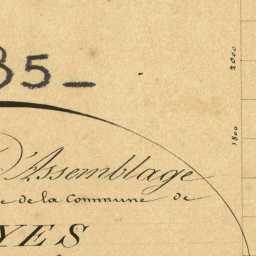 35_
d'Assemblage
de la Commune de
YES
2000
1800